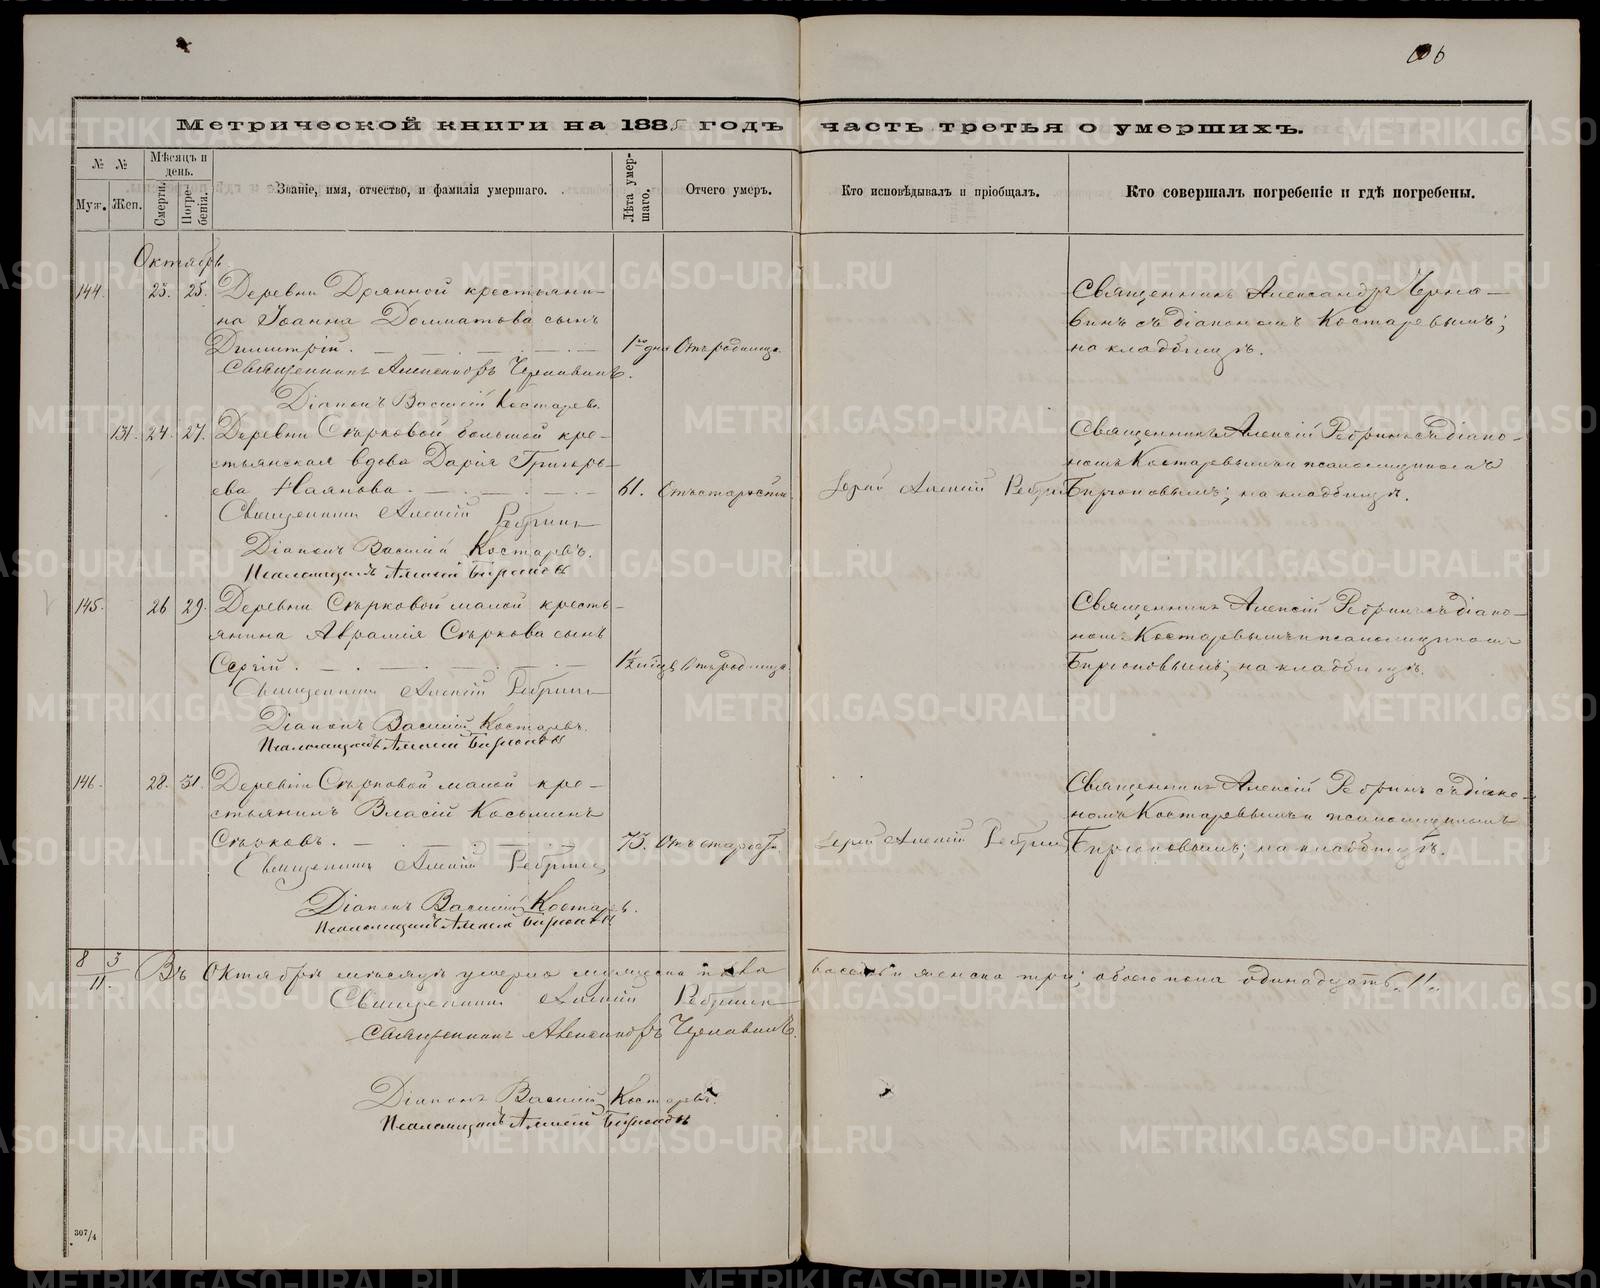 106
Метрической книги на 1885 годъ часть третья о умершихъ.
№ №
Мѣсяцъ и день.
Муж. Жен. Смерти. Погребенія.
Званіе, имя, отчество, и фамилія умершаго.
Лѣта умершаго.
Отчего умеръ.
Кто исповѣдывалъ и пріобщалъ.
Кто совершалъ погребеніе и гдѣ погребены.
Октябрь
144. 23. 25. Деревни Дрянной крестьяни-
на Іоанна Долматова сынъ
Димитрій. 1го дня Отъ родимца.
Священникъ Александръ Черна-
винъ съ діакономъ Костаревымъ;
на кладбищѣ.
Священникъ Александръ Чернавинъ.
Діаконъ Василій Костаревъ.
131. 24. 27. Деревни Скърковой большой кре-
стьянская вдова Дарія Григорь-
ева Наянова. 61. Отъ старости.
Іерей Алексій Ребринъ
Священникъ Алексій Ребринъ съ діако-
номъ Костаревымъ и псаломщикомъ
Бирюковымъ; на кладбищѣ.
Священникъ Алексій Ребринъ
Діаконъ Василій Костаревъ.
Псаломщикъ Алексій Бирюковъ
145. 26 29. Деревни Скърковой малой кресть-
янина Аврамія Скъркова сынъ
Сергій. Отъ родимца.
Священникъ Алексій Ребринъ съ діако-
номъ Костаревымъ и псаломщикомъ
Бирюковымъ; на кладбищѣ.
Священникъ Алексій Ребринъ
Діаконъ Василій Костаревъ.
Псаломщикъ Алексій Бирюковъ
146. 28. 31. Деревни Скърковой малой кре-
стьянинъ Власій Косьминъ
Скърковъ. 73. Отъ старости.
Іерей Алексій Ребринъ
Священникъ Алексій Ребринъ съ діако-
номъ Костаревымъ и псаломщикомъ
Бирюковымъ; на кладбищѣ.
Священникъ Алексій Ребринъ
Діаконъ Василій Костаревъ.
Псаломщикъ Алексій Бирюковъ
8 3
11. Въ Октябрѣ мѣсяцѣ умерло мужеска пола восемь и женска три; обоего пола одинадцать. 11.
Священникъ Алексій Ребринъ
Священникъ Александръ Чернавинъ.
Діаконъ Василій Костаревъ.
Псаломщикъ Алексій Бирюковъ
307/4
METRIKI.GASO-URAL.RU